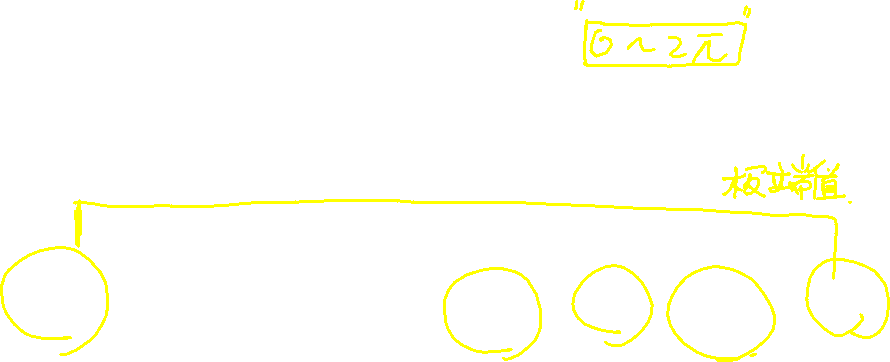 "0~2π"
板端值